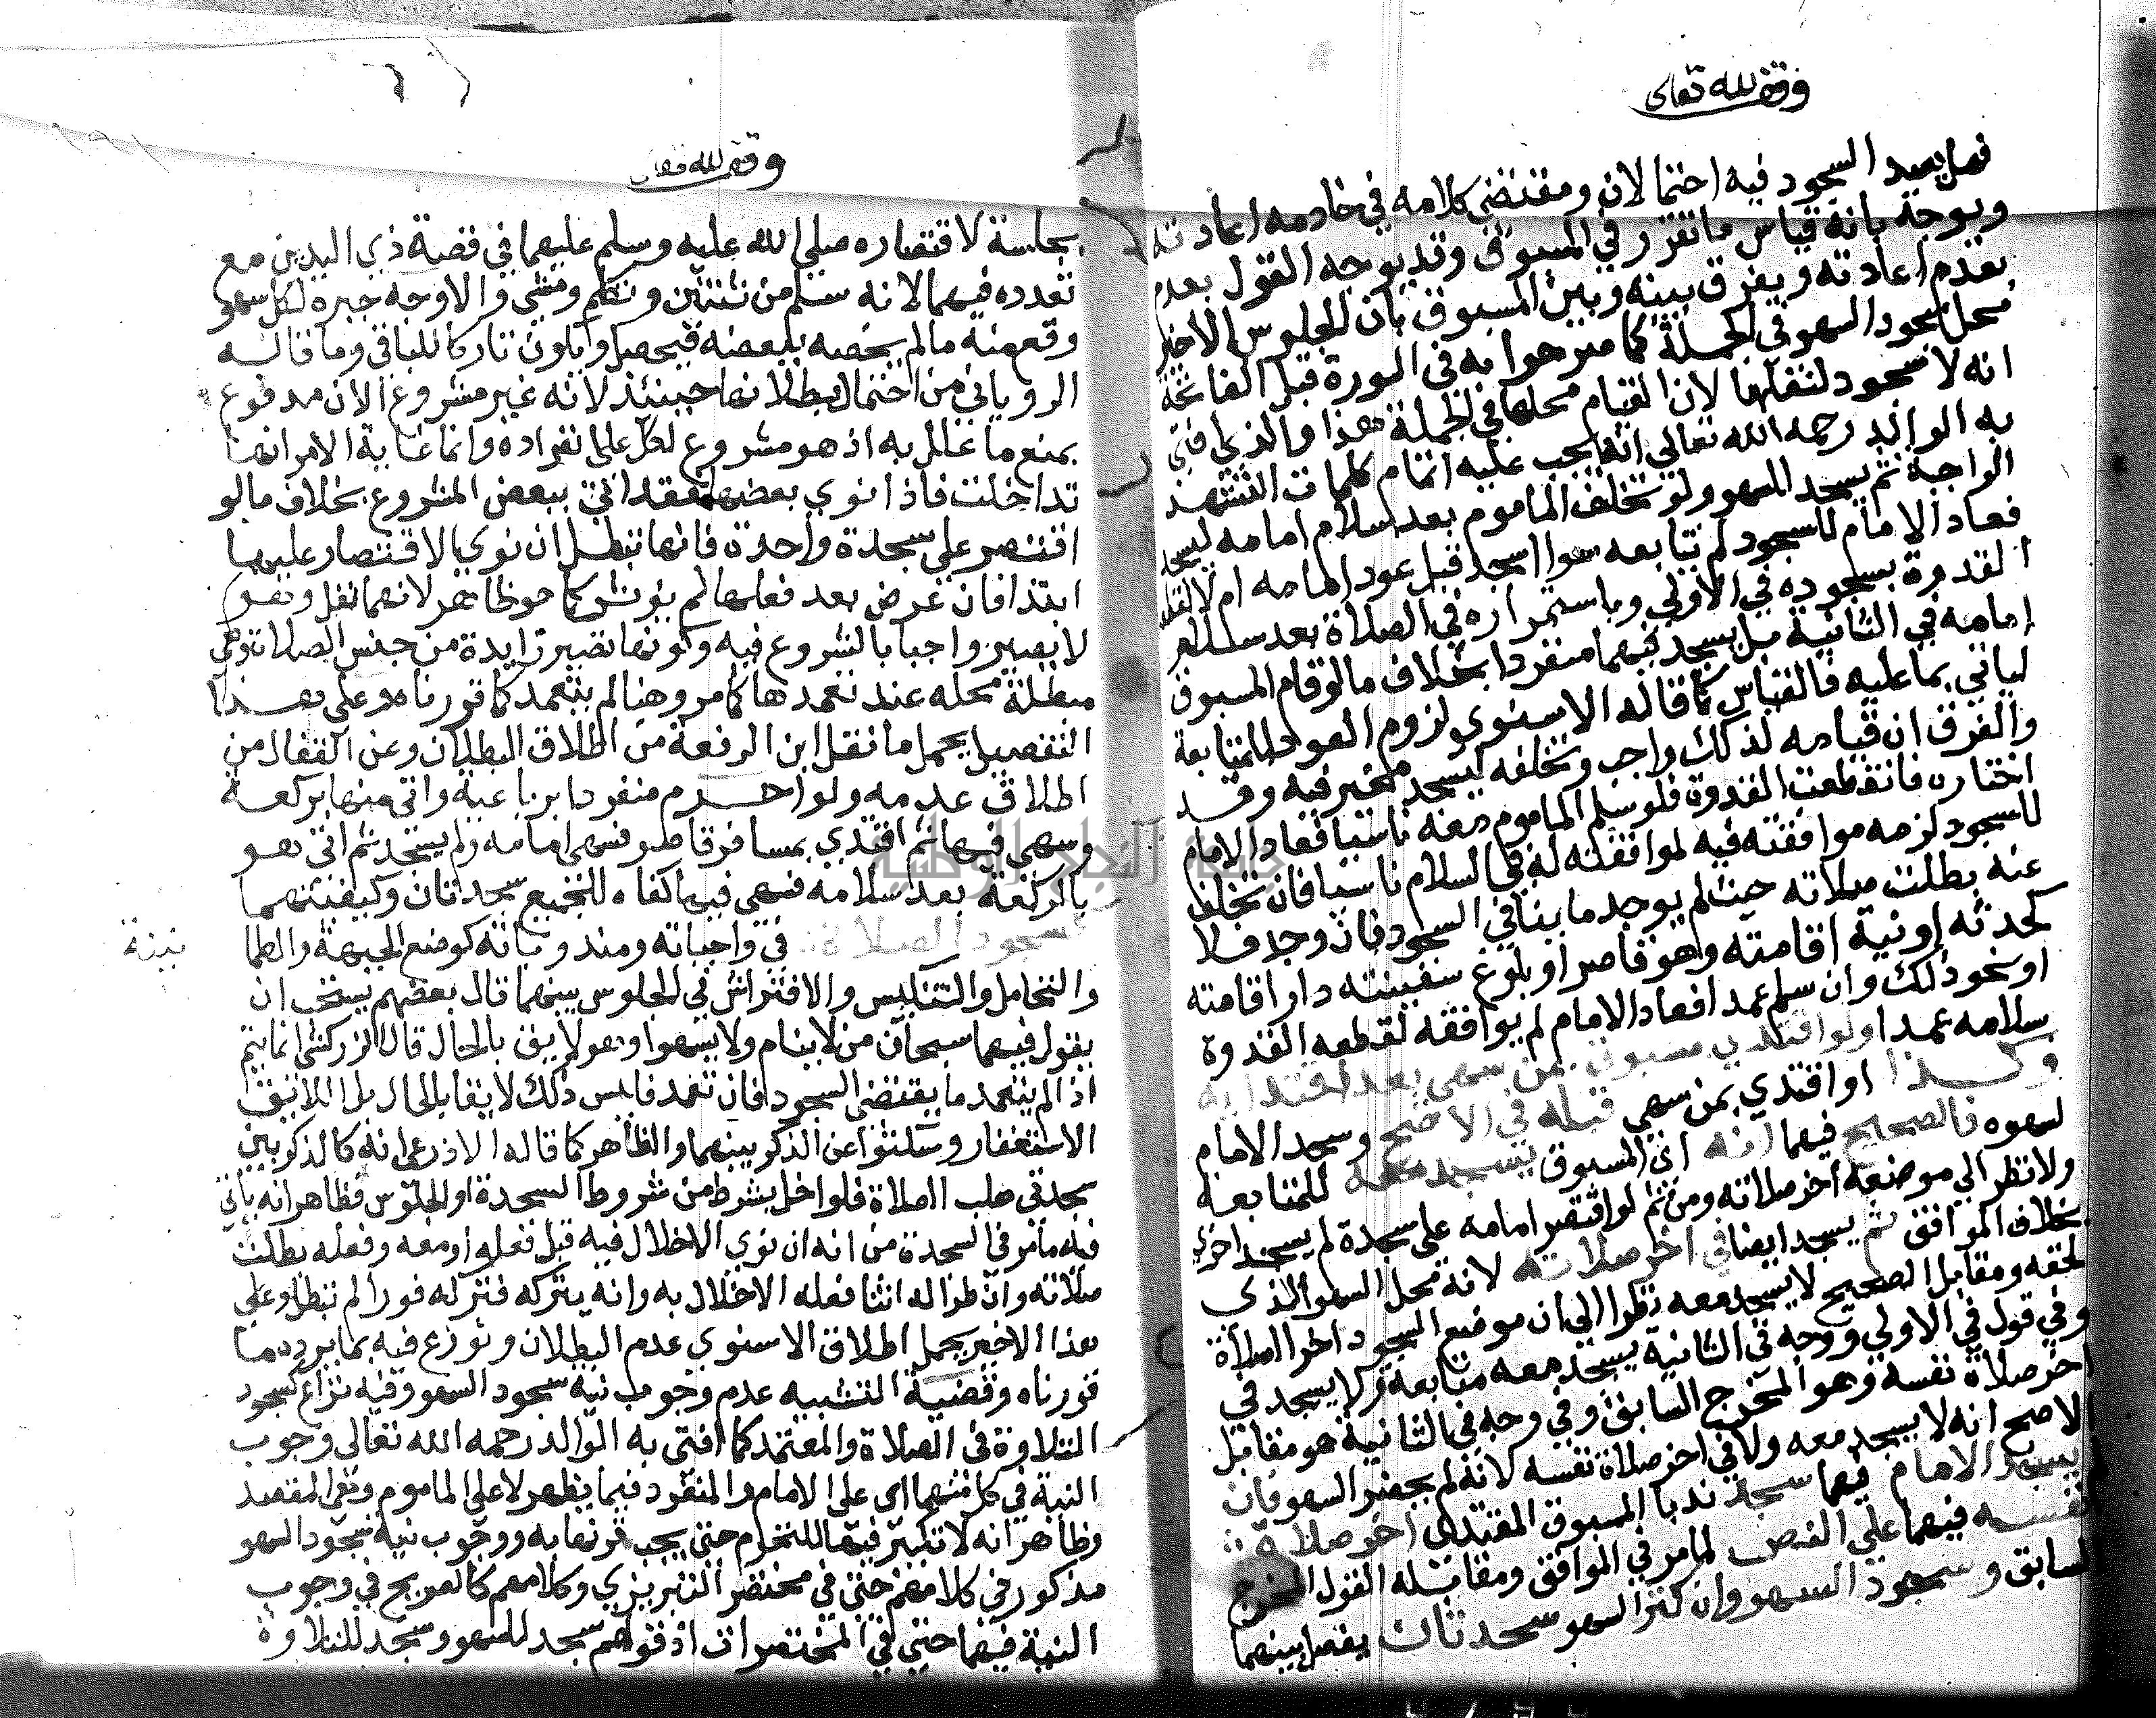 وقف لله تعالى
فهل يعيد السجود فيه احتمالان ومقتضى كلامه في خادمه اعادته
ويوجه بانه قياس ما تقرر في المسبوق وقد يوجه القول بعدم
بعدم اعادته ويفرق بينه وبين المسبوق بان الجلوس الاخير
محل سجود السهو في الجملة كما صرحوا به في السورة قبل الفاتحة
انه لا سجود لنقلها لان القيام محلها في الجملة هذا والذي افتى
به الوالد رحمه الله تعالى انه يجب عليه اتمام كلمات التشهد
الواجبة ثم يسجد للسهو ولو تخلف الماموم بعد سلام امامه ليسجد
فعاد الامام للسجود لم يتابعه سوا اسجد قبل عود امامه ام لا لقطعه
القدوة بسجوده في الاولى وباستمراره في الصلاة بعد سلام
امامه في الثانية بل يسجد فيهما منفردا بخلاف ما لو قام المسبوق
لياتي بما عليه فالقياس كما قاله الاسنوي لزوم العود للمتابعة
والفرق ان قيامه لذلك واجب وتخلفه ليسجد مخير فيه وقد
اختاره فانقطعت القدوة فلو سلم الماموم معه ناسيا فعاد الامام
للسجود لزمه موافقته فيه لموافقته له في السلام ناسيا فان تخلف
عنه بطلت صلاته حيث لم يوجد ما ينافي السجود فان وجد فلا
كحدثه او نية اقامته وهو قاصر او بلوغ سفينته دار اقامته
او نحو ذلك وان سلم عمدا فعاد الامام لم يوافقه لقطعه القدوة
سلامه عمدا ولو اقتدى مسبوق بمن سهى بعد اقتدايه
وكذا او اقتدي بمن سهي قبله في الاصح وسجد الامام
لسهوه فالصحيح فيهما انه اي المسبوق يسجد معه للمتابعة
ولا نظر الي موضعه اخر صلاته ومن ثم لو اقتصر امامه على سجدة لم يسجد اخرى
بخلاف الموافق ثم يسجد ايضا في اخر صلاته لانه محل السهو الذي
لحقه ومقابل الصحيح لا يسجد معه نظرا الى ان موضع السجود اخر الصلاة
وفي قول في الاولى ووجه في الثانية يسجد معه متابعة ولا يسجد في
اخر صلاة نفسه وهو المخرج السابق وفي وجه في الثانية هو مقابل
الاصح انه لا يسجد معه ولا في اخر صلاة نفسه لانه لم يحضر السهو فان
لم يسجد الامام فيهما سجد ندبا المسبوق المقتدى اخر صلاة
نفسه فيهما على النص لما مر في الموافق ومقابله القول المخرج
السابق وسجود السهو وان كثر السهو سجدتان يفصل بينهما
وقف لله تعالى
بجلسة لاقتصاره صلى الله عليه وسلم عليهما في قصة ذي اليدين مع
تعدده فيهما لانه سلم من ثنتين وتكلم ومشى والاوجه جبره لكل سهو
وقع منه مالم يخصه ببعضه فيحصل ويكون تاركا للباقي وما قاله
الروياني من احتمال بطلانها حينئذ لانه غير مشروع الان مدفوع
بمنع ما علل به اذ هو مشروع لكل على انفراده وانما غاية الامر انها
تداخلت فاذا نوي بعضها فقد اتى ببعض المشروع بخلاف ما لو
اقتصر على سجدة واحدة فانها تبطل ان نوى الاقتصار عليها
ابتدا فان عرض بعد فعلها لم يوثر كما هو ظاهر لانهما نفل وهو
لا يصير واجبا بالشروع فيه وكونها تصير زايدة من جنس الصلاة وهي
مبطلة محله عند تعمدها كما مر وهنا لم يتعمد كما قررناه وعلى هذا
التفصيل يحمل ما نقل ابن الرفعة من اطلاق البطلان وعن القفال من
اطلاق عدمه ولو احرم منفردا برباعية واتى منها بركعة
وسهى فيها ثم اقتدي بمسافر قاصر فسهى امامه ولم يسجد ثم اتى هو
بالركعة بعد سلامه فسهى فيها كفاه للجميع سجدتان وكيفيتهما
كسجود الصلاة في واجباته ومندوباته كوضع الجبهة والطما
نينة
والتحامل والتنكيس والافتراش في الجلوس بينهما قال بعضهم يستحب ان
يقول فيهما سبحان من لا ينام ولا يسهوا وهو لايق بالحال قال الزركشي انما يتم
اذا لم يتعمد ما يقتضى السجود فان تعمد فليس ذلك لايقا بالحال بل اللايق
الاستغفار وسكتوا عن الذكر بينهما والظاهر كما قاله الاذرعى انه كالذكر بين
سجدتى صلب الصلاة فلو اخل بشرط من شروط السجدة او الجلوس فظاهر انه ياتي
فيه ما مر في السجدة من انه ان نوي الاخلال فيه قبل فعله او معه وفعله بطلت
صلاته وان طرا له اثنا فعله الاخلال به وانه يتركه فتركه فورا لم تبطل وعلى
هذا الاخير يحمل اطلاق الاسنوي عدم البطلان ونوزع فيه بما يرده ما
قررناه وقضية التشبيه عدم وجوب نية سجود السهو وفيه نزاع كسجود
التلاوة في الصلاة والمعتمد كما افتى به الوالد رحمه الله تعالى وجوب
النية في كل منهما اي على الامام والمنفرد فيما يظهر لا على الماموم وهي القصد
وظاهر انه لا تكبير فيها للتحرم حتى يجب قرنها به ووجوب نية سجود السهو
مذكور في كلامهم حتى في مختصر التبريزي وكلامهم كالصريح في وجوب
النية فيهما حتى في المختصرات اذ قولهم سجد للسهو وسجد للتلاوة